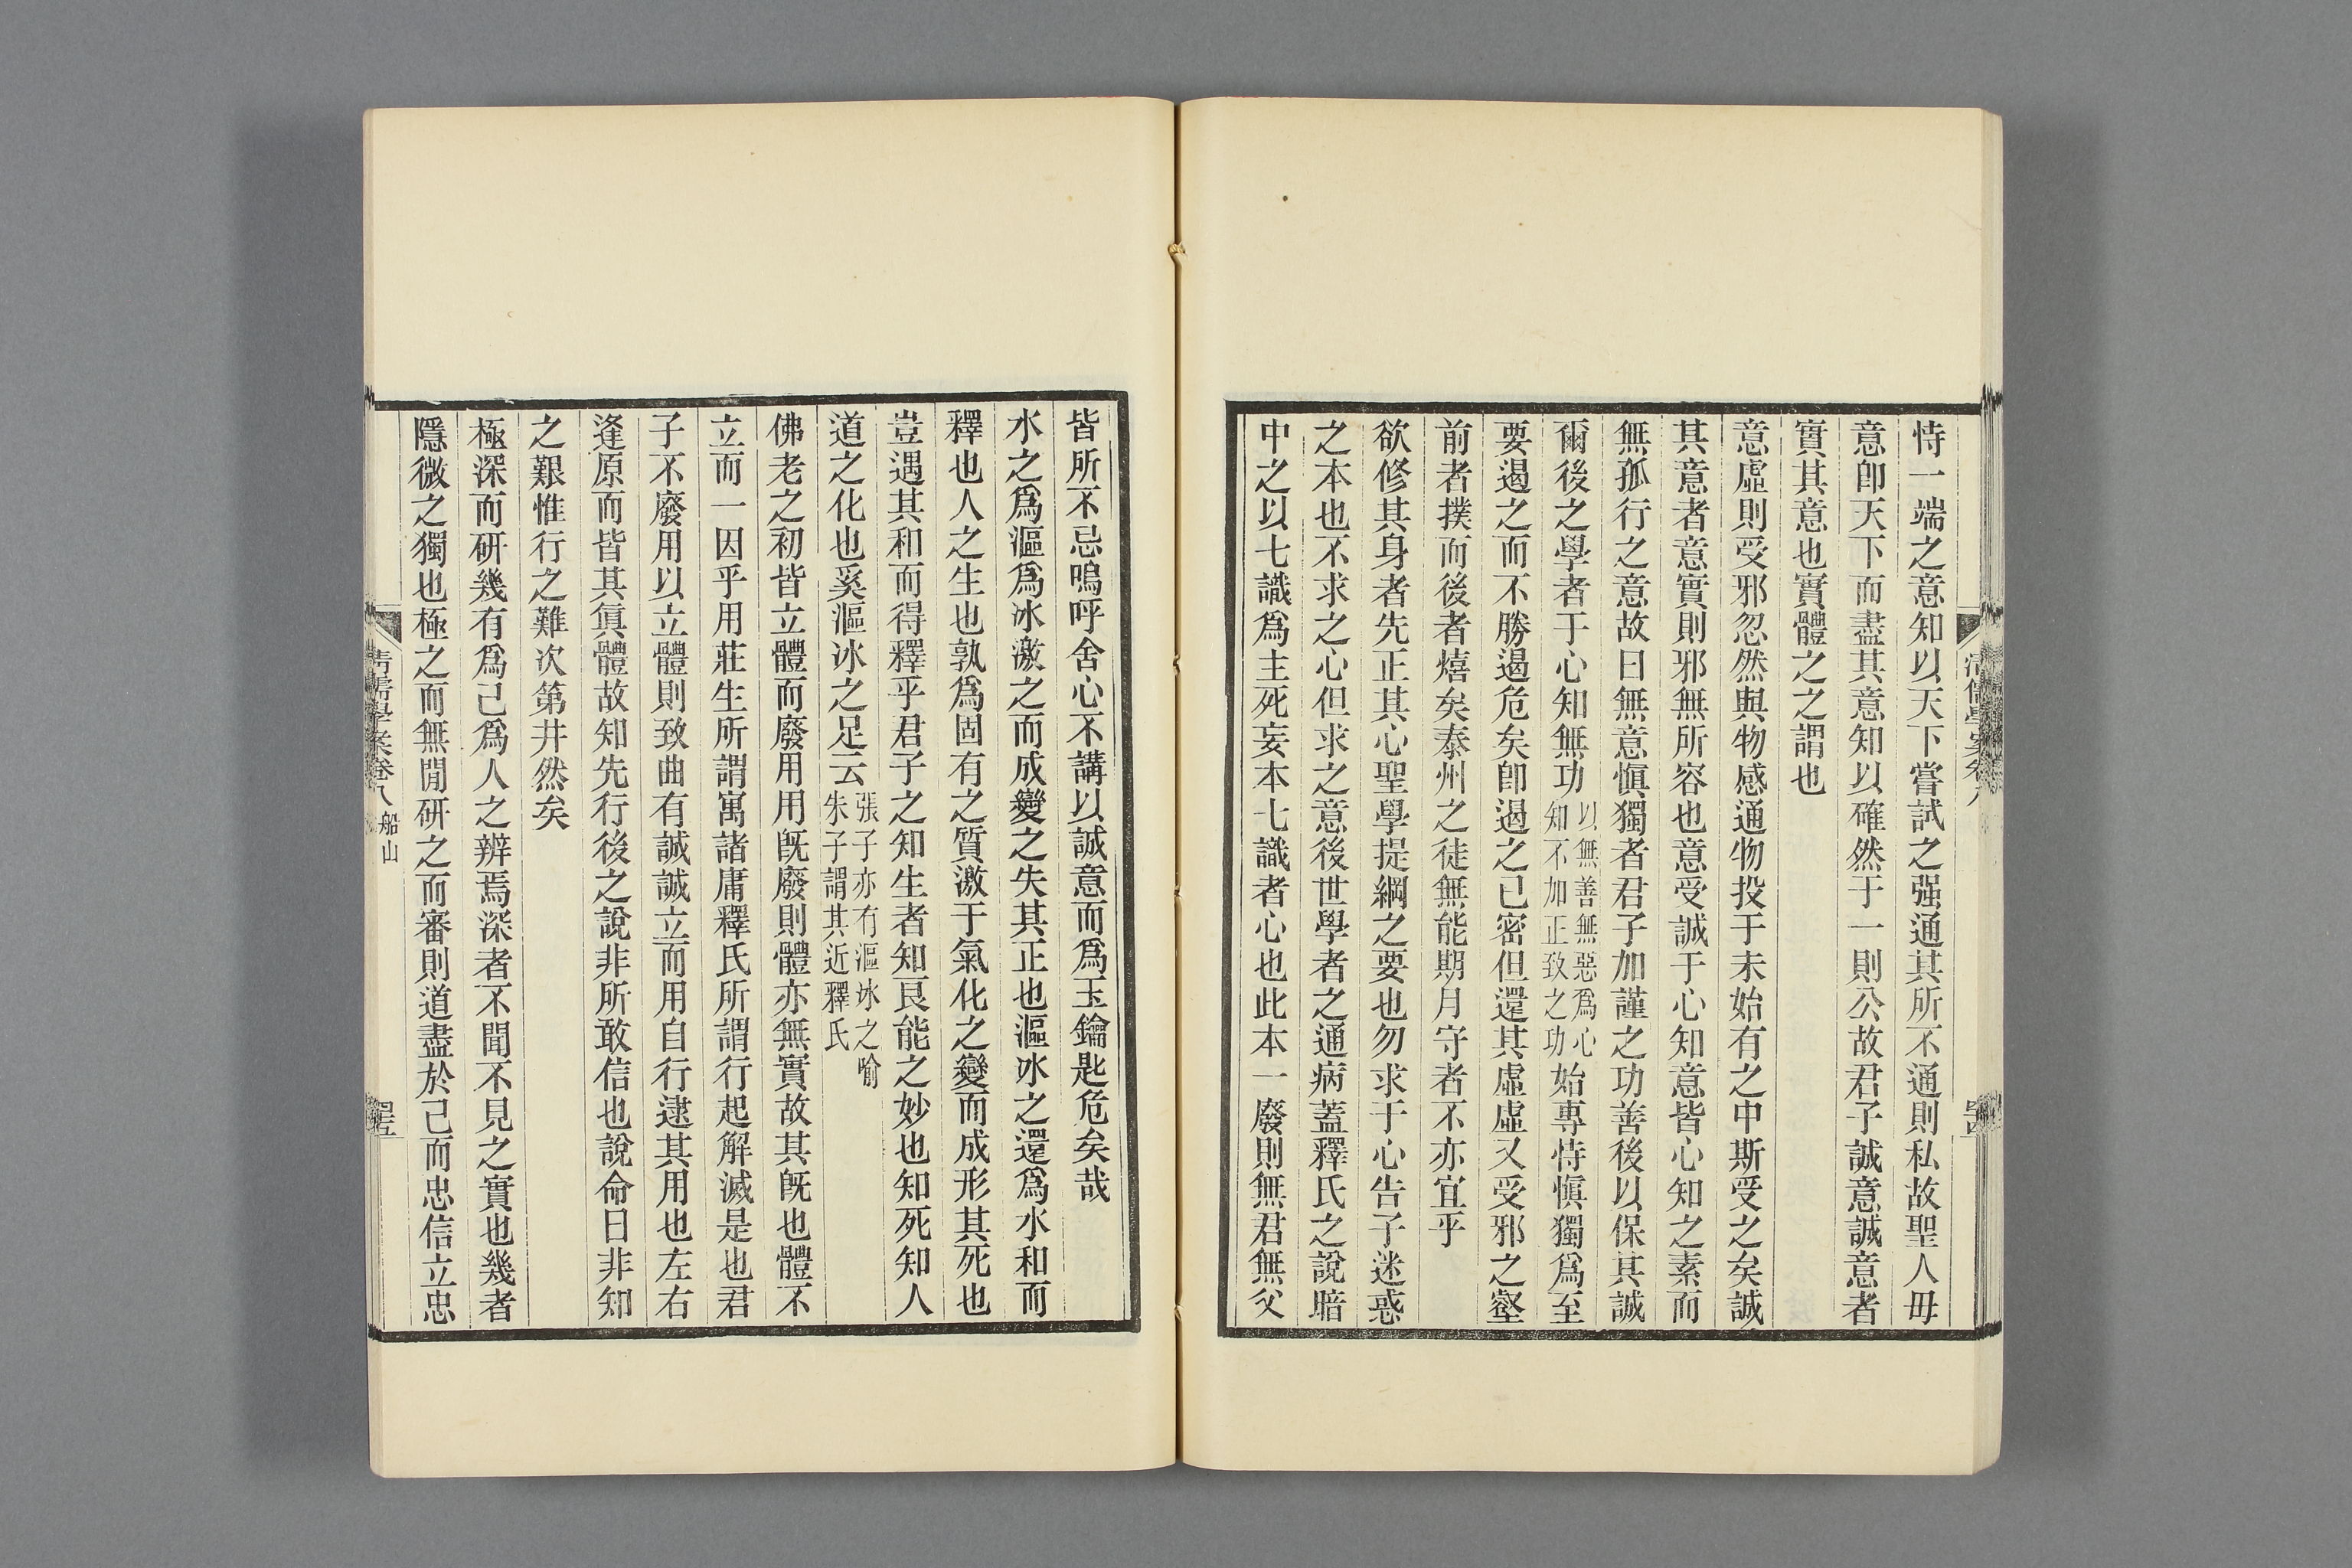 恃一端之意知以天下嘗試之强通其所不通則私故聖人毋
意卽天下而盡其意知以確然于一則公故君子誠意誠意者
實其意也實體之之謂也
意虛則受邪忽然與物感通物投于未始有之中斯受之矣誠
其意者意實則邪無所容也意受誠于心知意皆心知之素而
無孤行之意故曰無意愼獨者君子加謹之功善後以保其誠
爾後之學者于心知無功以無善無惡爲心知不加正致之功始專恃愼獨爲至
要遏之而不勝遏危矣卽遏之已密但還其虛虛又受邪之壑
前者撲而後者熺矣泰州之徒無能期月守者不亦宜乎
欲修其身者先正其心聖學提綱之要也勿求于心告子迷惑
之本也不求之心但求之意後世學者之通病蓋釋氏之說暗
中之以七識爲主死妄本七識者心也此本一廢則無君無父
皆所不忌嗚呼舍心不講以誠意而爲玉鑰匙危矣哉
水之爲漚爲冰激之而成變之失其正也漚冰之還爲水和而
釋也人之生也孰爲固有之質激于氣化之變而成形其死也
豈遇其和而得釋乎君子之知生者知良能之妙也知死知人
道之化也奚漚冰之足云張子亦有漚冰之喻朱子謂其近釋氏
佛老之初皆立體而廢用用旣廢則體亦無實故其旣也體不
立而一因乎用莊生所謂寓諸庸釋氏所謂行起解滅是也君
子不廢用以立體則致曲有誠誠立而用自行逮其用也左右
逢原而皆其眞體故知先行後之說非所敢信也說命曰非知
之艱惟行之難次第井然矣
極深而研幾有爲己爲人之辨焉深者不聞不見之實也幾者
隱微之獨也極之而無閒研之而審則道盡於己而忠信立忠
清儒學案卷八 船山